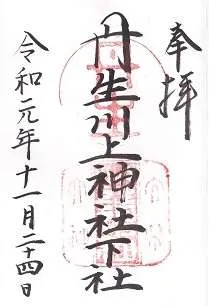 奉拝
丹生川上神社下社
令和元年十一月二十四日